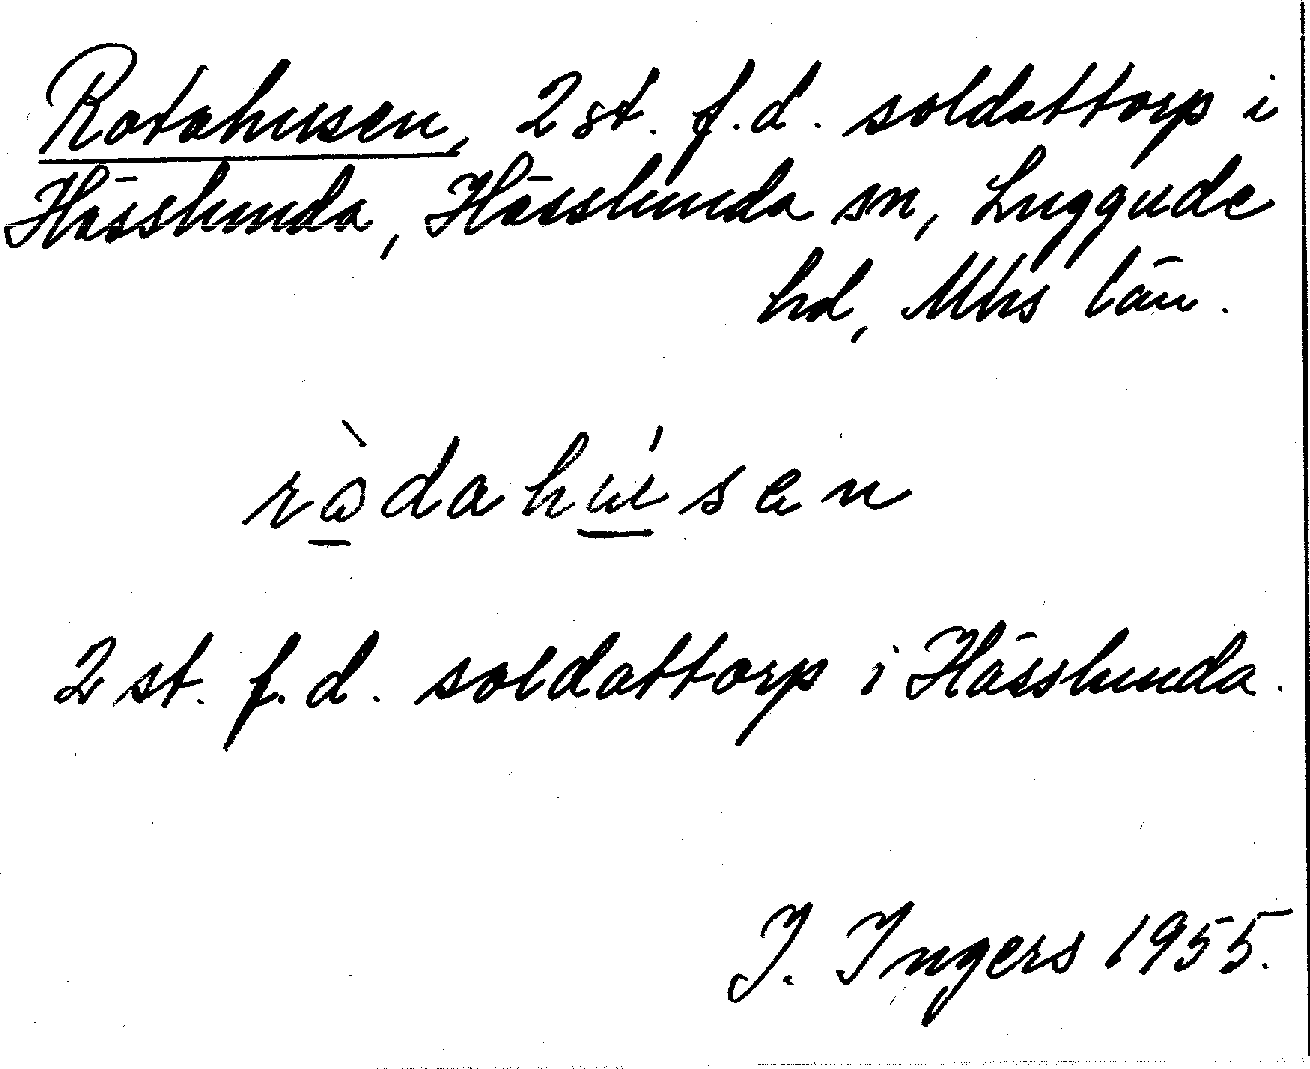 Rotahusen, 2 st. f.d. soldattorp i
Hässlunda, Hässlunda sn, Luggude
hd, Mhs län.
ròdahúsen
2 st. f.d. soldattorp i Hässlunda.
I. Ingers 1955.